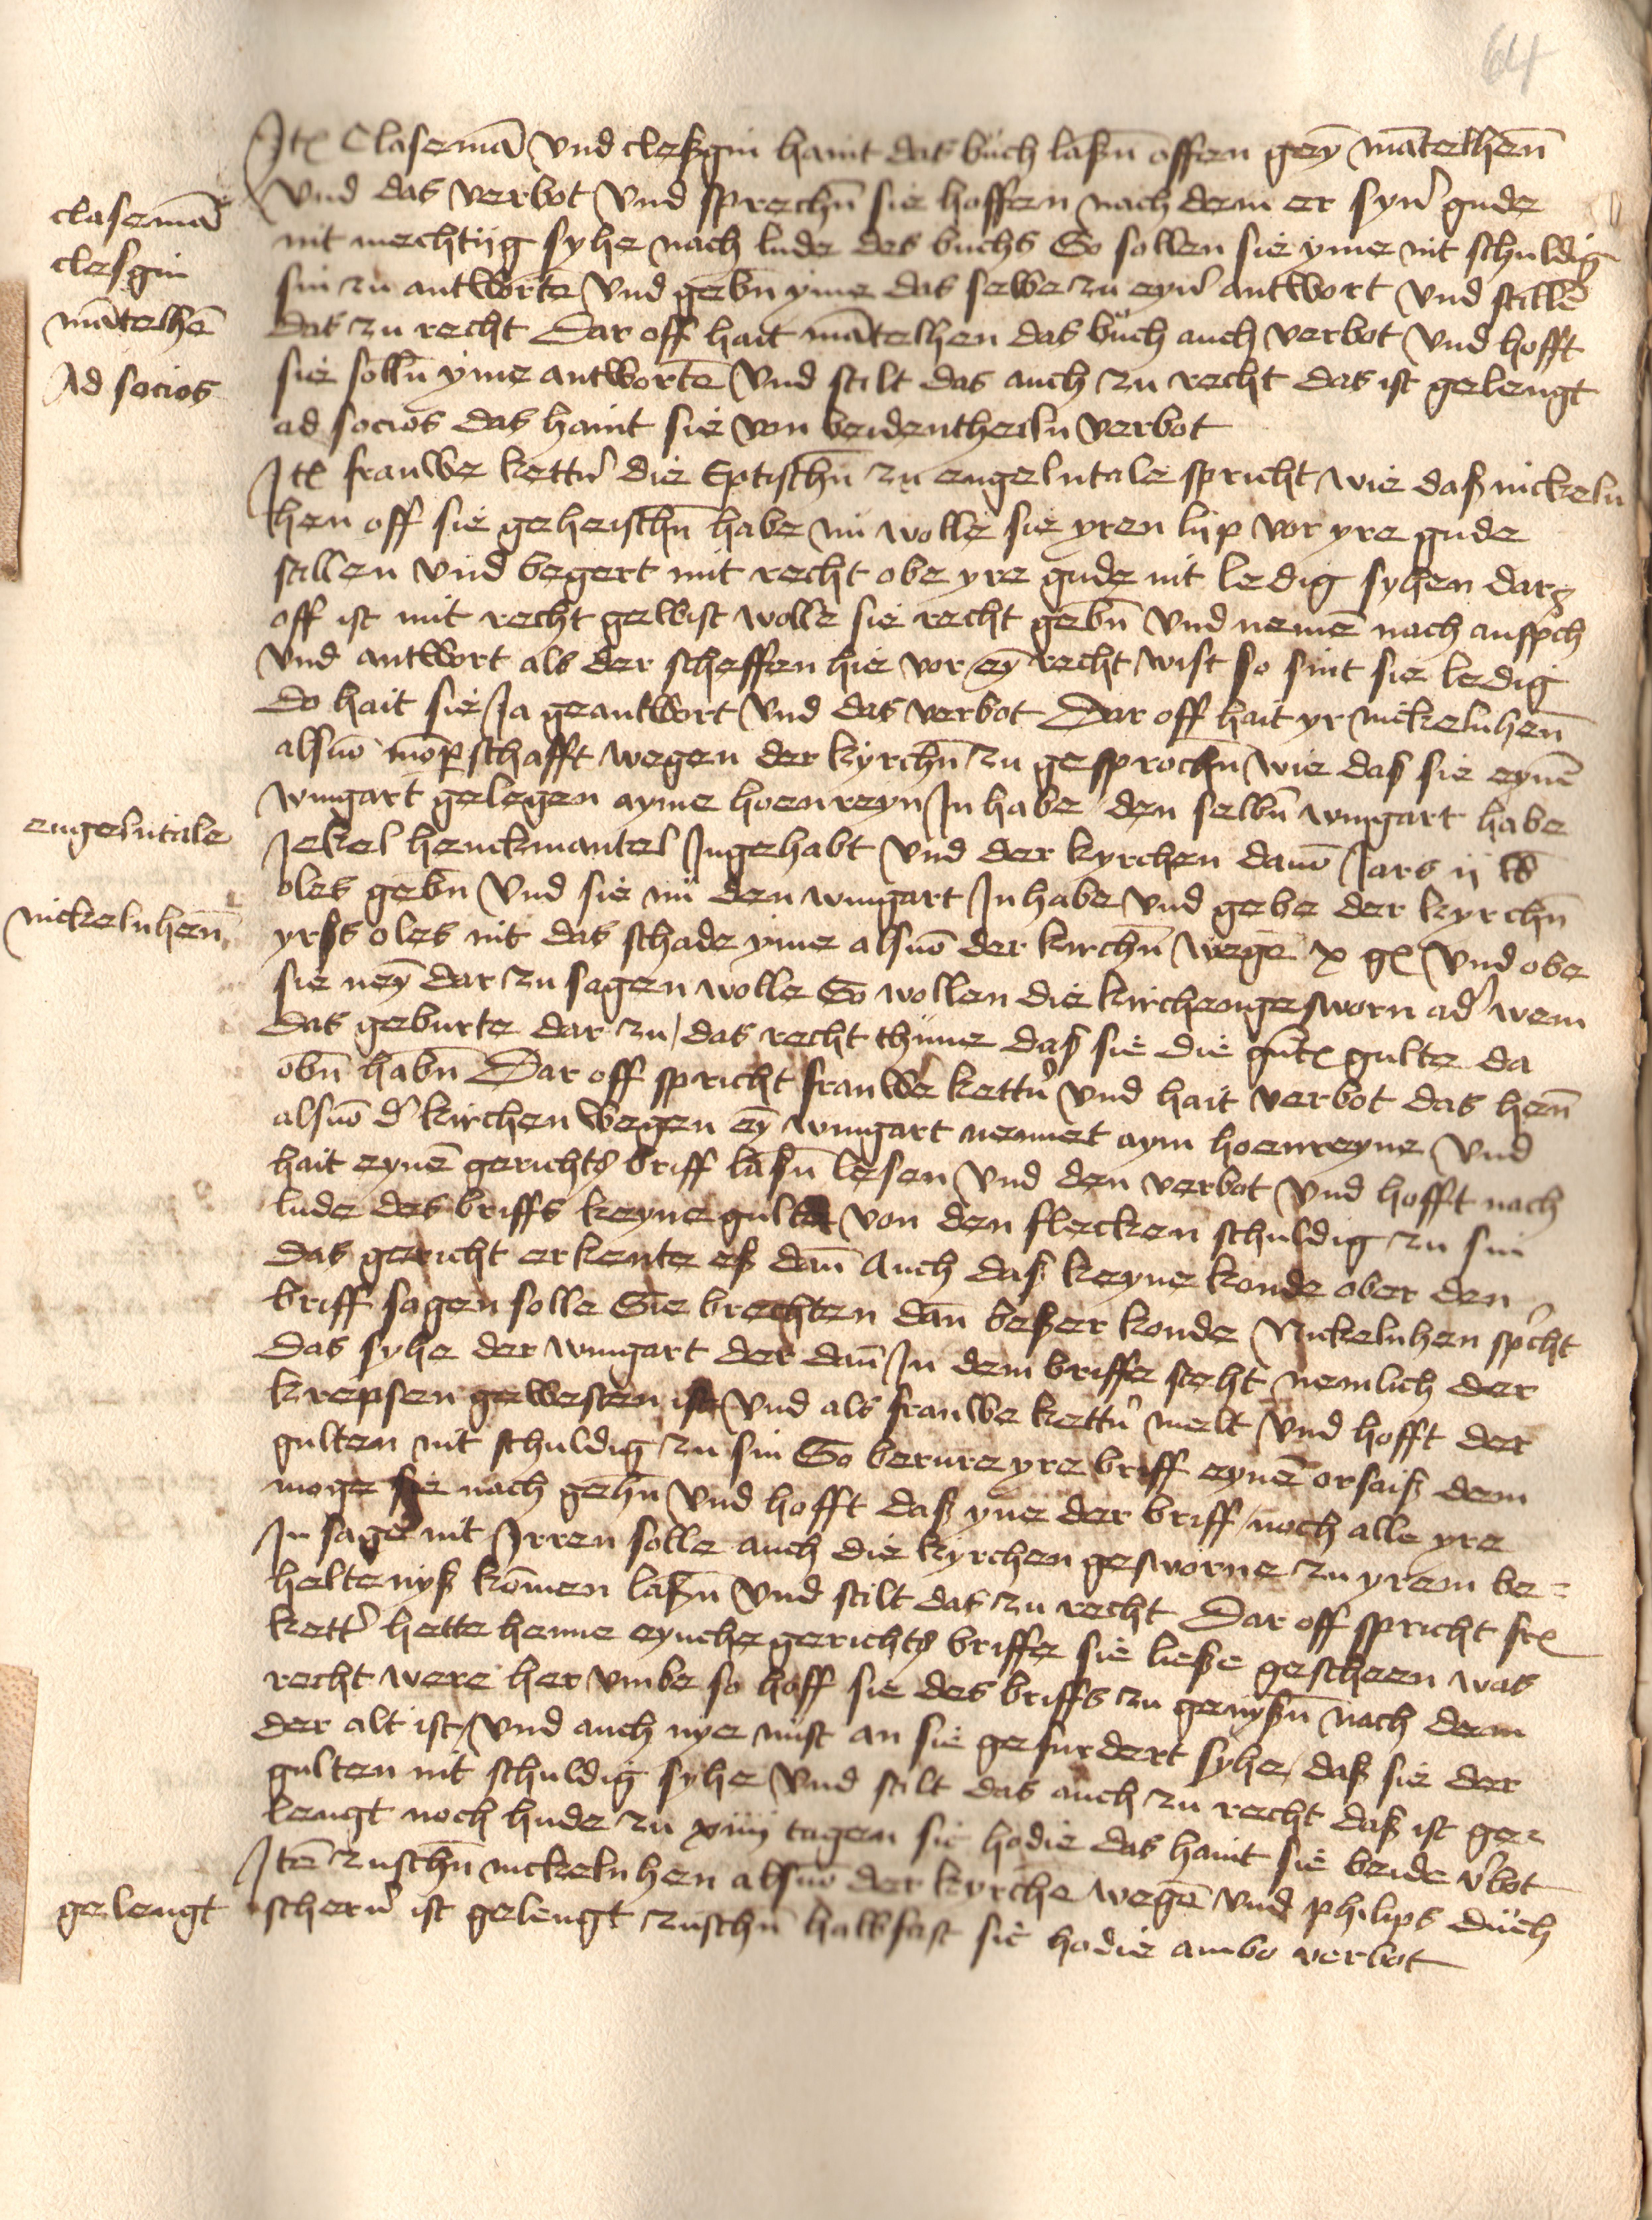 64
Itē Clasemā vnd cleßgin haint das buch laßn̄ offen geȳ mātelhen̄
vnd das verbot vnd sprechn̄ sie hoffen nach dem er syn' gude
nit mechtijg syhe nach lude des buchs So sollen sie yme nit schuldig
sin zu antworte̅ vnd gebn̄ yme das selbe zu eyn' antwort vnd stille̅
das zu recht Dar off hait mātelhen das buch auch verbot vnd hofft
sie solln̄ yme antworte̅ vnd stilt das auch zu recht das ist gelengt
ad socios das haint sie von beidentheiln verbot
clasemā
clesgin
mātelhē
Ad socios
Itē frauwe kettn' die Eptischn̄ zu engelntale spricht wie daß nickeln
hen off sie geheischn̄ habe nū wolle sie yren lijp vor yre gude
stillen vnd begert mit recht obe yre gude nit ledig syhen dar
off ist mit recht gewist wolle sie recht gebn̄ vnd neme̅ nach anspch
vnd antwort als der scheffen hie vor eȳ recht wist so sint sie ledig
do hait sie Ja geantwort vnd das verbot Dar off hait yr nickelnhen̄
alsūo mōpschafft wegen der kyrchn̄ zu gesprochn̄ wie das sie eynē
wingart gelegen ayme hoenreyn Jnhabe den selbn̄ wingart habe
Jekel henckmantel Jngehabt vnd der kyrchen davō Jars ij
oles gebn̄ vnd sie nū den wingart Jnhabe vnd gebe der kyrchn̄
yrß oles nit das schade yme alsūo der kirchn̄ wegē x gl vnd obe
sie neȳ dar zu sagen wolle So wollen die kirchengesworn ad' wem
das geburte dar zu das recht thūne daß sie die gūte gulte da
obn̄ habn̄ Dar off spricht frauwe kettn' vnd hait verbot das hen̄
alsūo d' kirchen wegen eȳ wingart nennet aym hoenreyne vnd
hait eynē gerichts briff laßn̄ lesen vnd den verbot vnd hofft nach
lude des briffs keyne gulte von den flecken schuldig zu sin
das gericht erkente eß dan̄ Auch daß keyne konde ober den
briff sagen solle Sie brechten dan̄ beßer konde Nickelnhen sp'cht
das syhe der wingart der dan̄ Jn dem briffe steht nemlich der
krepsen gewesten ist vnd als frauwe kettn' melt vnd hofft der
gulten nit schuldig zu sin So berure yre briff eynē orsaiß dem
moge sie nach gehn̄ vnd hofft daß yne der briff noch alle yre
Jn sage nit Jrren solle auch die kyrchen gesworne zu yrem be=
heltenyß kōmen laßn̄ vnd stilt das zu recht Dar off spricht frē
kett' hette henne eynche gerichts briffe sie ließe gescheen was
recht were her vmbe so hoff sie des briffs zu genyßn̄ nach dem
der alt ist vnd auch nye nust an sie gefurdert syhe, daß sie der
gulten nit schuldig syhe vnd stilt das auch zu recht daß ist ge=
lengt noch hude zu xiiij tagen sic hodie das haint sie beide v'bot
engelntale
nickelnhen̄
Itē zuschn̄ nickelnhen alsūo der kyrche wegē vnd philips duch
scherr' ist gelengt zuschn̄ halbfast sic hodie ambo verbot
gelengt